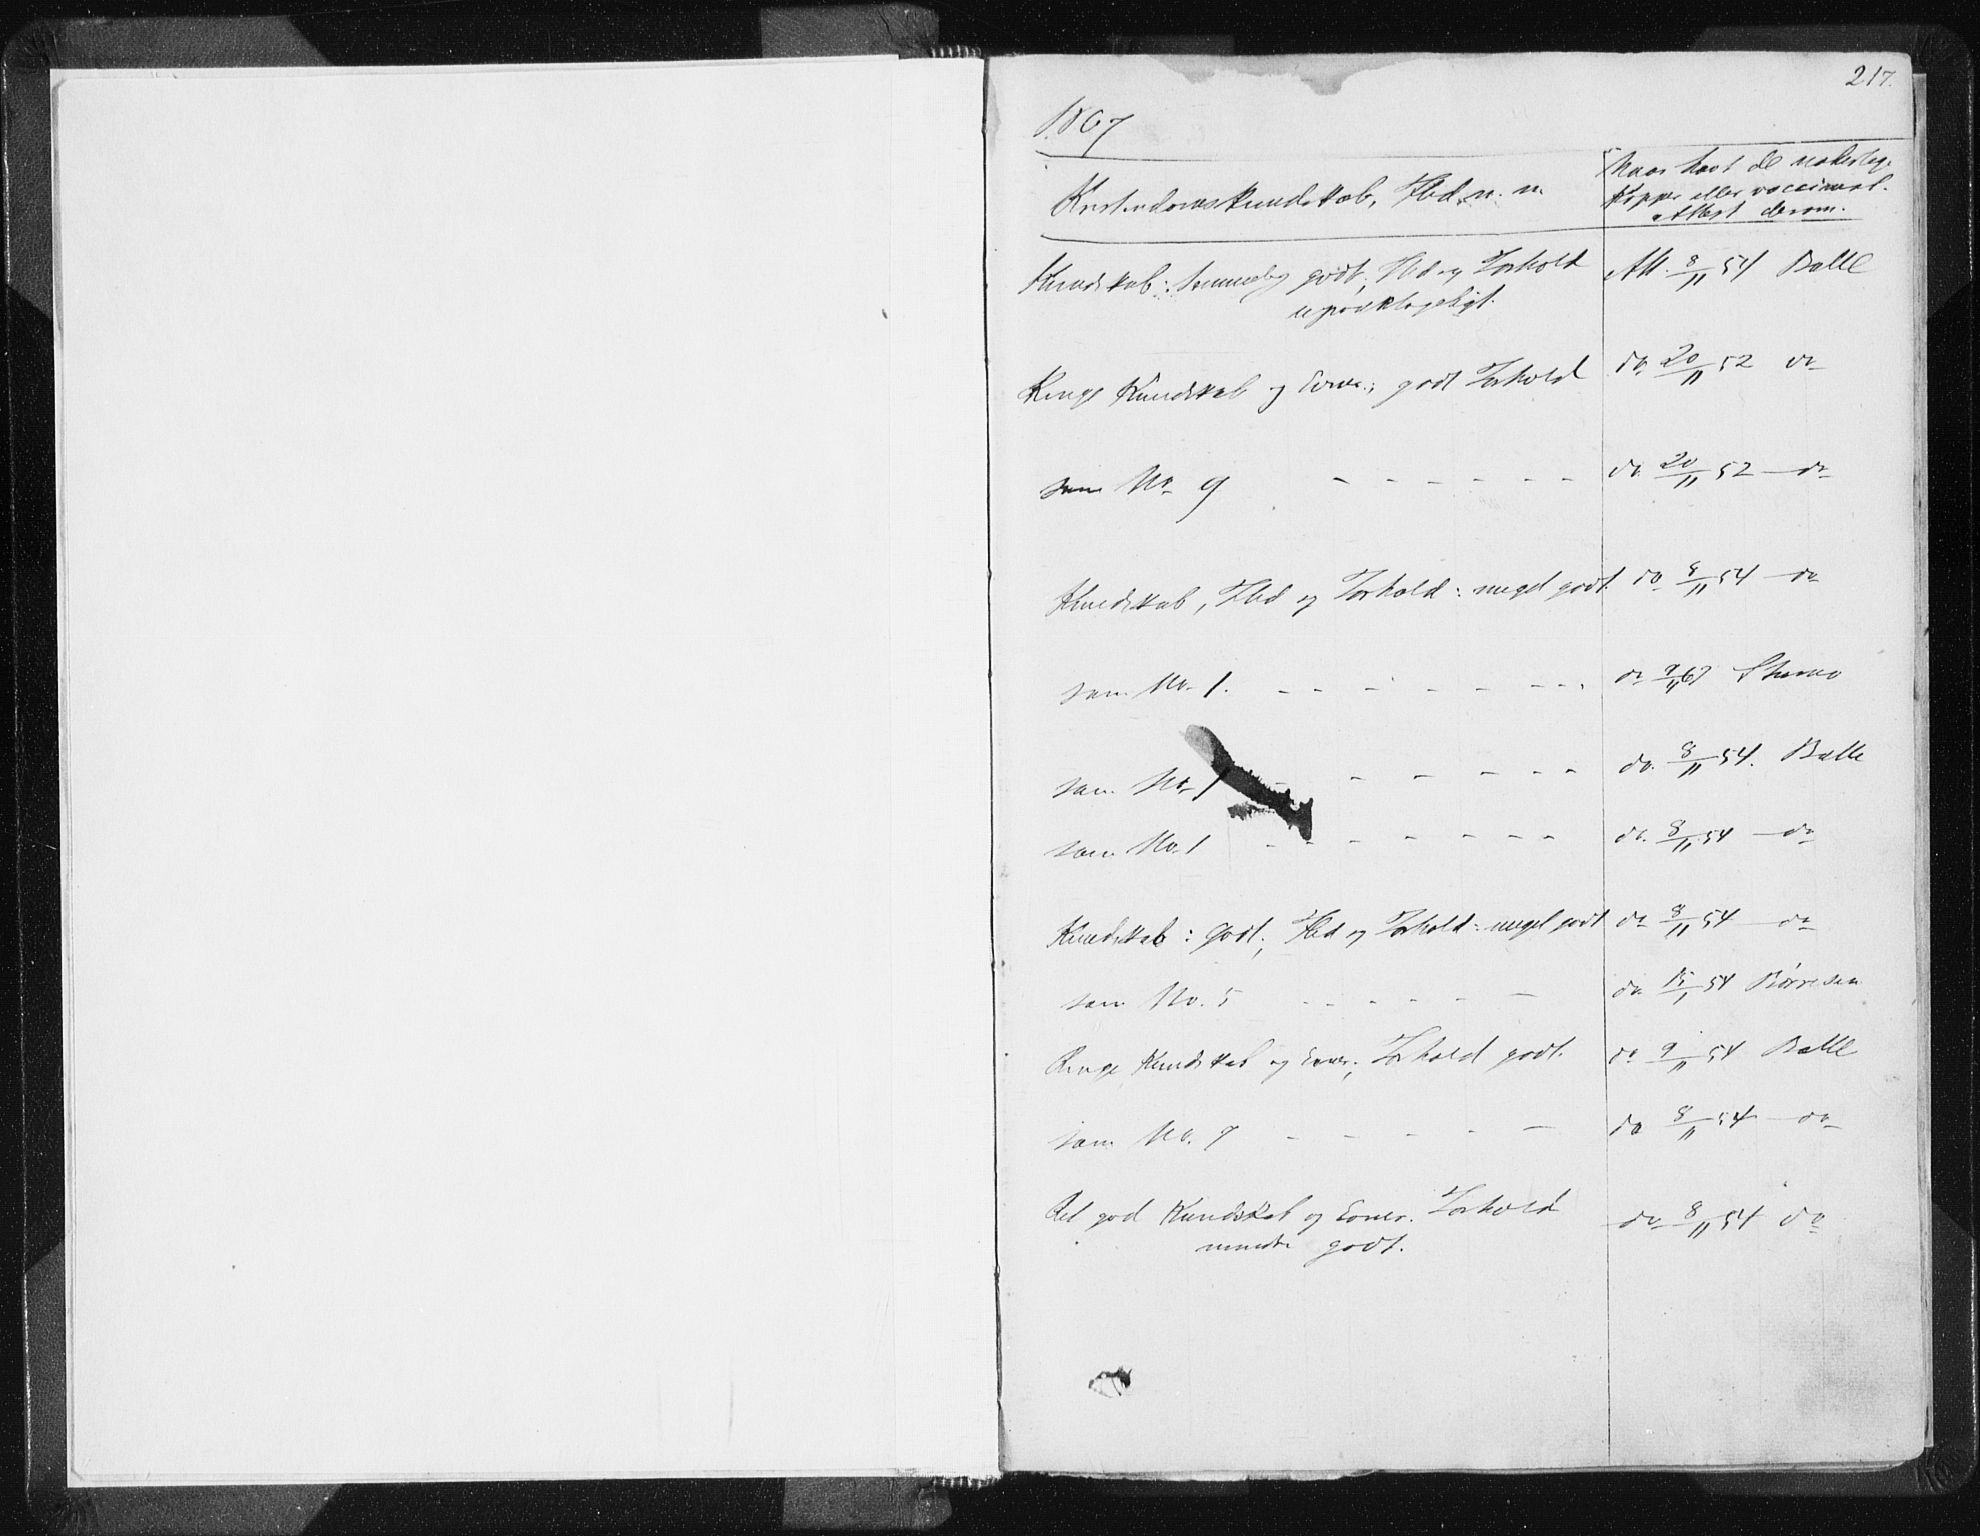 217.
1867
Kristendomskundskab, Flid m. m.
Naar havt de naturlige
Kopper eller vaccineret.
Attest derom.
Kundskab: temmelig godt, Flid og Forhold
upaaklageligt.
Att. 8/11 54 Balle
Ringe Kundskab og Evner; godt Forhold
do 20/11 52 do
som No. 9 - - - - - -
do. 20/11 52 - do
Kundskab, Flid og Forhold: meget godt.
do 8/11 54 - do
som No. 1. - - - - - - -
do
som No. 1 - - - - - -
do. 8/11 54. Balle
som No. 1 - - - - - - -
do. 8/11 54 - do
Kundskab: godt; Flid og Forhold: meget godt
do 8/11 54 - do
som No. 5 - - - - - -
do. 15/1 54 Børresen
Ringe Kundskab og Evner; Forhold godt.
do 9/11 54 Balle
som No. 9 - - - - -
do 8/11 54 - do
Ret god Kundskab og Evner. Forhold
mindre godt.
do 8/11 54 do